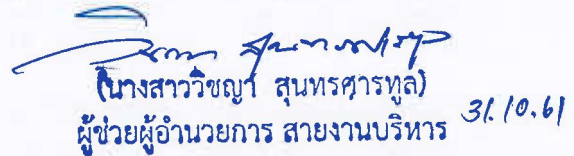 (นางสาววิชญา สุนทรศารทูล)
ผู้ช่วยผู้อำนวยการ สายงานบริหาร 31.10.61